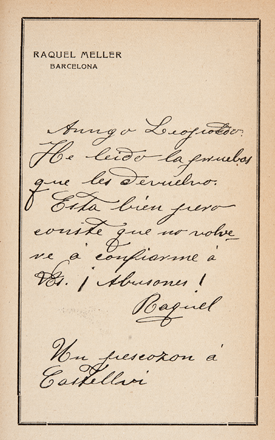 RAQUEL MELLER
BARCELONA
Amigo Leopoldo.
He leido la pruebas
que les devuelvo.
Esta bien pero
conste que no volve-
ré á confiarme á
Vs. ¡Abusones!
Raquel
Un pescozon á
Castellvi